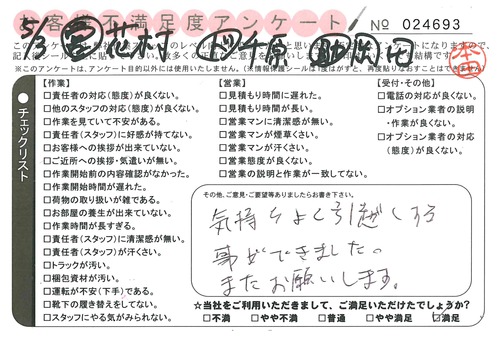 お客様不満足度アンケート
No 024693
※このアンケートは、アンケート目的以外には使用いたしません。
チェックリスト
【作業】
□責任者の対応(態度)が良くない。
□他のスタッフの対応(態度)が良くない。
□作業を見ていて不安がある。
□責任者(スタッフ)に好感が持てない。
□お客様への挨拶が出来ていない。
□ご近所への挨拶・気遣いが無い。
□作業開始前の内容確認がなかった。
□作業開始時間が遅れた。
□荷物の取り扱いが雑である。
□お部屋の養生が出来ていない。
□作業時間が長すぎる。
□責任者(スタッフ)に清潔感が無い。
□責任者(スタッフ)が汗くさい。
□トラックが汚い。
□梱包資材が汚い。
□運転が不安(下手)である。
□靴下の履き替えをしてない。
□スタッフにやる気がみられない。
【営業】
□見積もり時間に遅れた。
□見積もり時間が長い。
□営業マンに清潔感が無い。
□営業マンが煙草くさい。
□営業マンが汗くさい。
□営業態度が良くない。
□営業の説明と作業が一致してない。
【受付・その他】
□電話の対応が良くない。
□オプション業者の説明
・作業が良くない。
□オプション業者の対応
(態度)が良くない。
その他、ご意見・ご要望等ありましたらお書き下さい。
気持ちよく引越しする
事ができました。
またお願いします。
☆当社をご利用いただきまして、ご満足いただけたでしょうか?
□不満 □やや不満 □普通 □やや満足 □満足